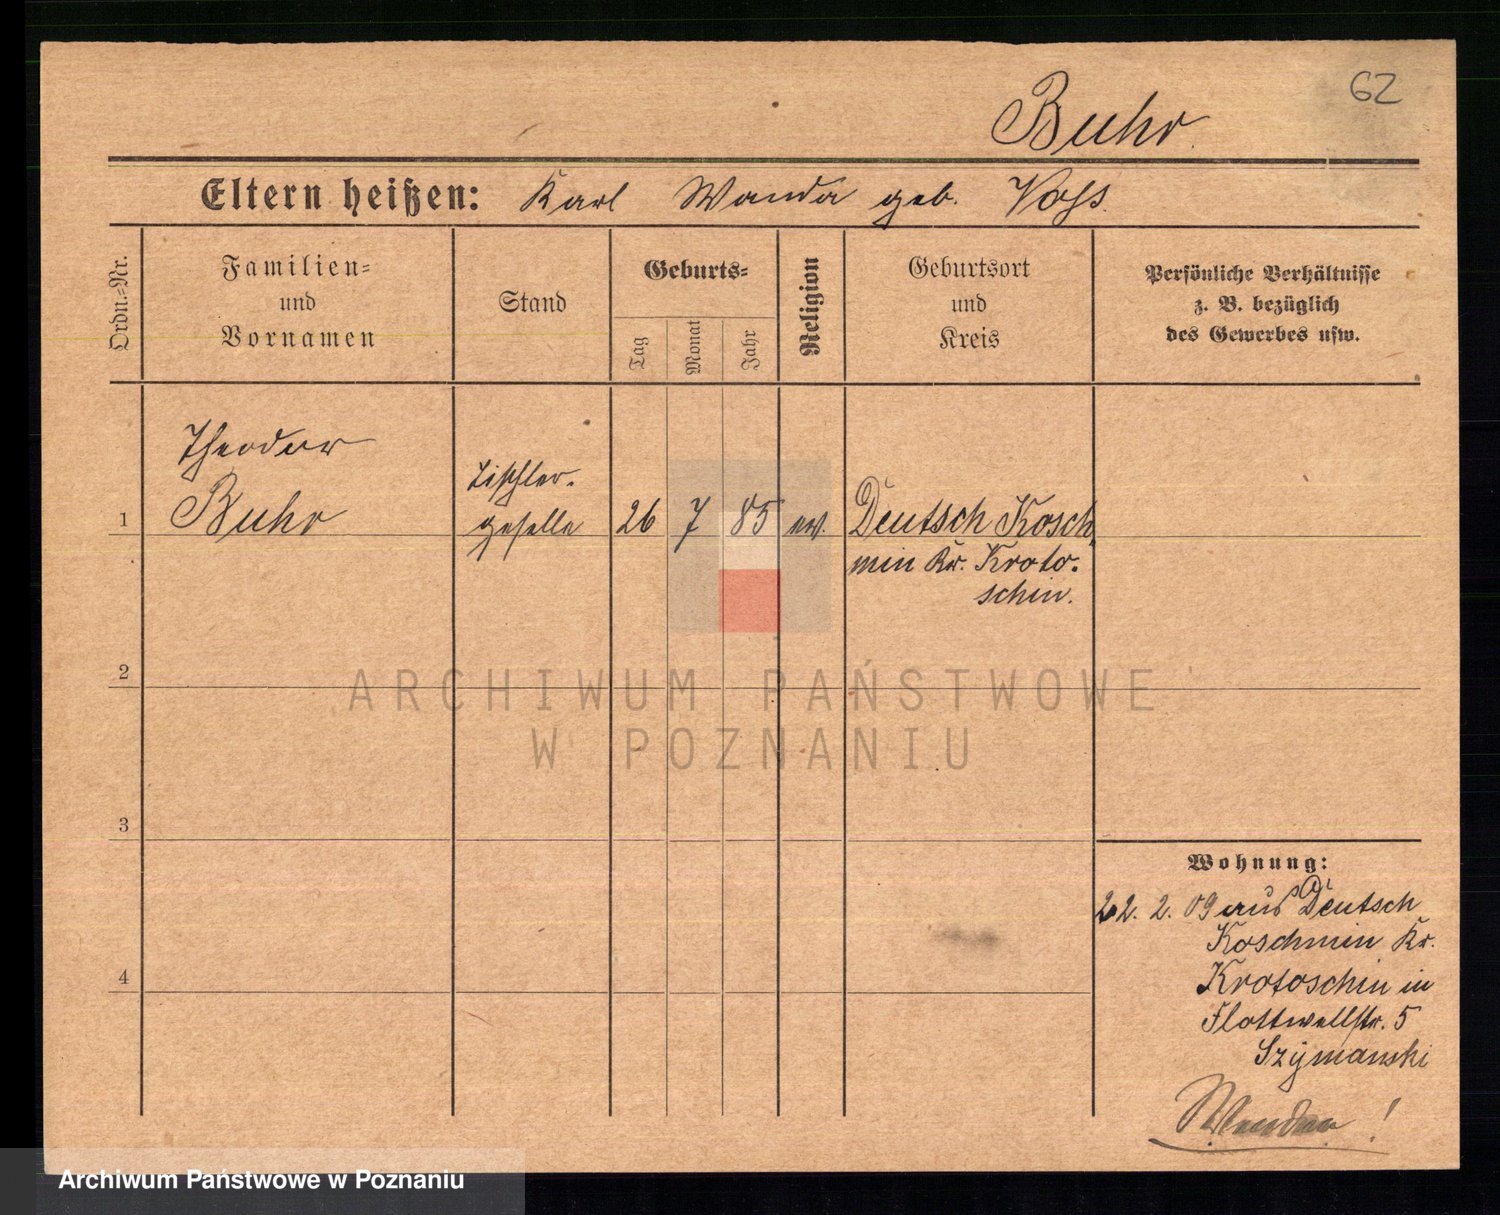 62
Buhr.
Eltern heißen: Karl Wanda geb. Voß.
Ordn.-Nr.
Familien-
und
Vornamen
Stand
Geburts-
Tag
Monat
Jahr
Religion
Geburtsort
und
Kreis
Persönliche Verhältnisse
z. B. bezüglich
des Gewerbes usw.
1
Theodor
Buhr
Tischler-
geselle
26 7 85 ev.
Deutsch Kosch-
min Kr. Kroto-
schin.
2
3
4
ARCHIWUM PAŃSTWOWE
W POZNANIU
Wohnung:
22. 2. 09 aus Deutsch
Koschmin Kr.
Krotoschin in
Flottwellstr. 5
Szymanski
Archiwum Państwowe w Poznaniu